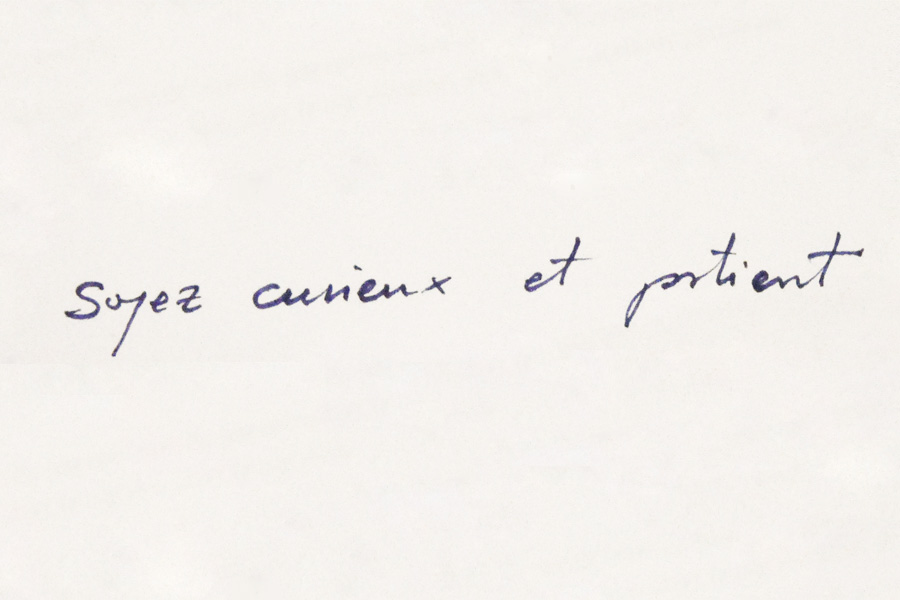 Soyez curieux et patient